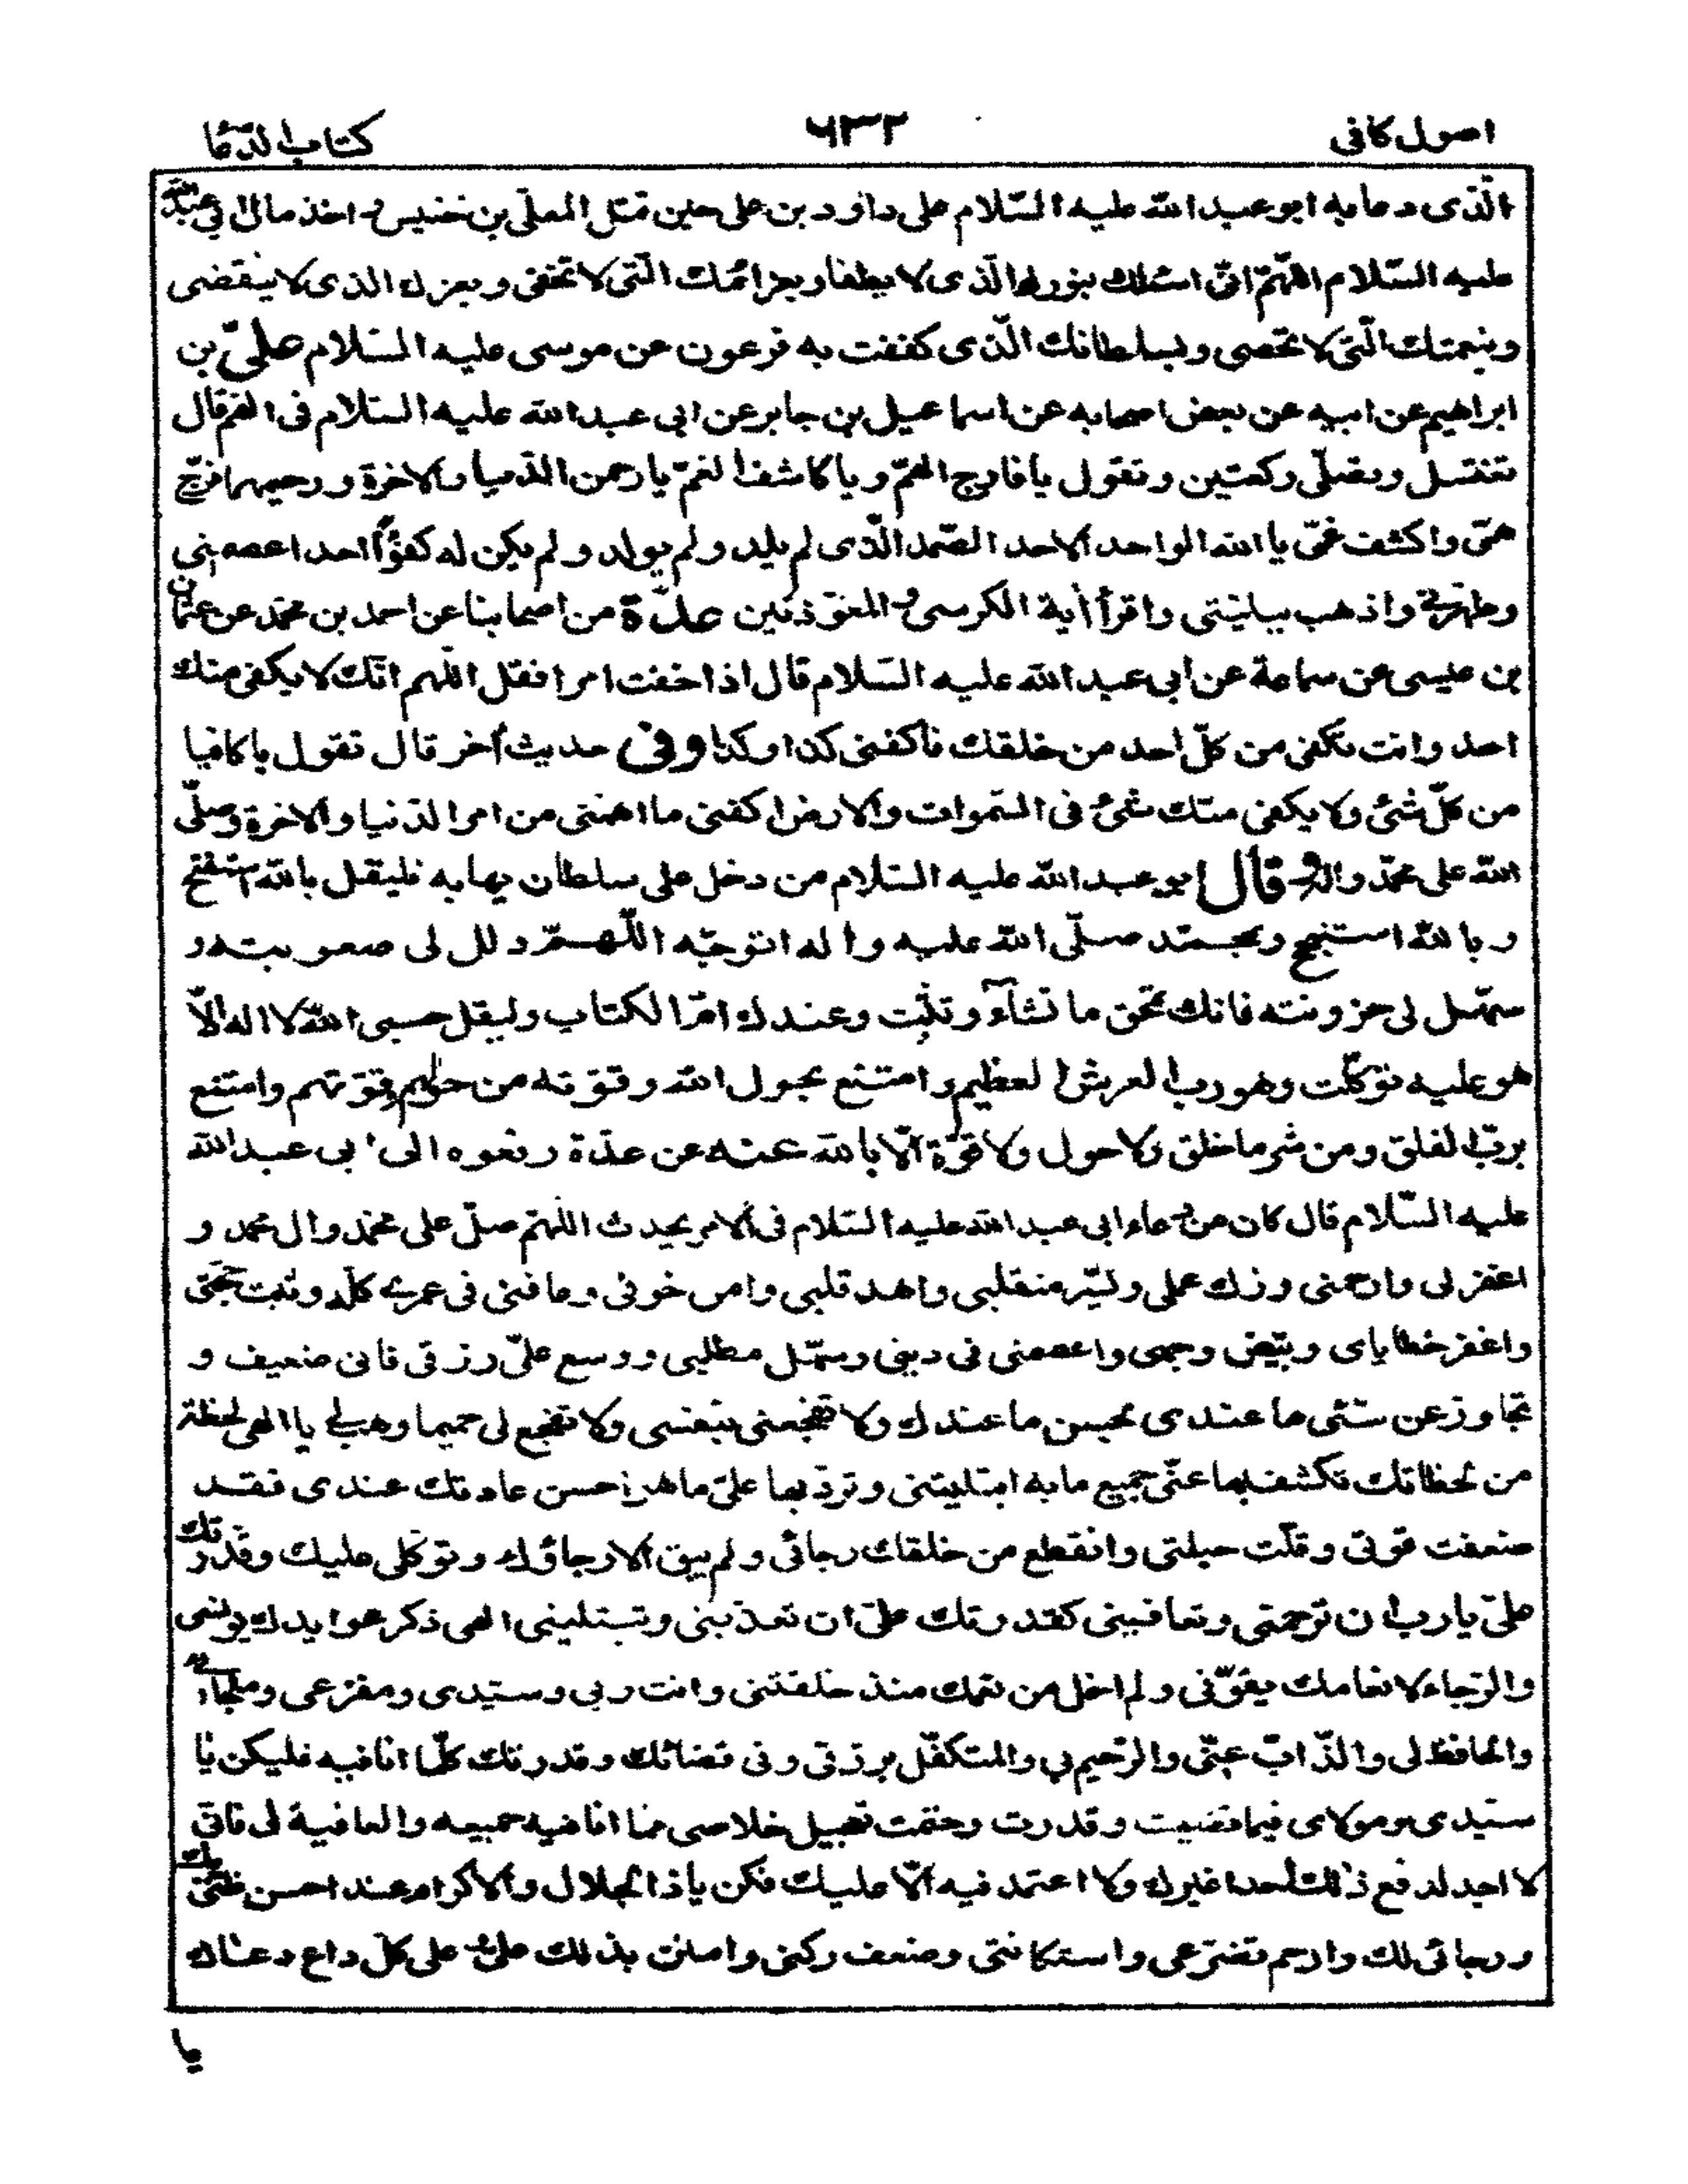 اصول كافى
٦٣٢
كتاب الدّعا
الّذى دعا به ابو عبد الله عليه السّلام على داود بن على حين قتل المعلّى بن خنيس و اخذ مال ابى عبد الله
عليه السّلام اللّهمّ انّى اسئلك بنورك الّذى لا يطفا و بعزائمك الّتى لا تخفى و بعزك الذى لا ينقضى
وبنعمتك الّتى لا تحصى وبسلطانك الّذى كففت به فرعون عن موسى عليه السّلام علىّ بن
ابراهيم عن ابيه عن بعض اصحابه عن اسماعيل بن جابر عن ابى عبد الله عليه السلام فى الغم قال
تغتسل وتصلّى ركعتين وتقول يا فارج الهمّ ويا كاشف الغمّ يا رحمن الدّنيا والاخرة ورحيمهما فرّج
همّى واكشف غمّى يا الله الواحد الاحد الصّمد الّذى لم يلد ولم يولد ولم يكن له كفؤًا احد اعصمنى
وطهّرنى واذهب ببليّتى واقرأ أية الكرسى والمعوّذتين عدّة من اصحابنا عن احمد بن محمّد عن عثمان
بن عيسى عن سماعة عن ابى عبد الله عليه السّلام قال اذا خفت امرا فقل اللّهم انّك لا يكفى منك
احد وانت تكفى من كلّ احد من خلقك فاكفنى كذا وكذا وفى حديث أخر قال تقول يا كافيا
من كلّ شئ ولا يكفى منك شئ فى السّموات والارض اكفنى ما اهمّنى من امر الدّنيا والاخرة وصلّى
الله على محمّد واله وقال ابو عبد الله عليه السّلام من دخل على سلطان يهابه فليقل بالله استفتح
وبالله استنجح وبمحمّد صلّى الله عليه واله اتوجّه اللّهمّ ذلل لى صعوبته و
سهّل لى حزونته فانك تمحق ما تشاء وتثبت وعندك امّ الكتاب وليقل حسبى الله لا اله الّا
هو عليه توكّلت وهو رب العرش العظيم وامتنع بحول الله وقوّته من حولهم وقوّتهم وامتنع
بربّ الفلق ومن شر ما خلق ولا حول ولا قوّة الّا بالله عنه عن عدّة رفعوه الى ابى عبد الله
عليه السّلام قال كان من دعاء ابى عبد الله عليه السّلام فى الامر يحدث اللهمّ صلّ على محمّد وال محمد و
اغفر لى وارحمنى وزك عملى ويسّر منقلبى واهد قلبى وامن خوفى وعافنى فى عمرى كلّه وثبت حجّتى
واغفر خطاياى وبيّض وجهى واعصمنى فى دينى وسهّل مطلبى ووسع علىّ رزقى فانى ضعيف و
تجاوز عن سيّئى ما عندى بحسن ما عندك ولا تفجعنى بنفسى ولا تفجع لى حميما وهب لى يا الهى لحظة
من لحظاتك تكشف بها عنّى جميع ما به ابتليتنى وتردّ بها علىّ ما هو احسن عادتك عندى فقد
ضعفت قوّتى وقلّت حيلتى وانقطع من خلقك رجائى ولم يبق الا رجاؤك وتوكلى عليك وقدرتك
علىّ يا رب ان ترحمنى وتعافينى كقدرتك علىّ ان تعذّبنى وتبتلينى الهى ذكر عوايدك يونسى
والرّجاء لانعامك يقوّينى ولم اخل من نعمك منذ خلقتنى وانت ربى وسيّدى ومفزعى وملجائى
والحافظ لى والذّابّ عنّى والرّحيم بى والمتكفّل برزقى وفى قضائك وقدرتك كلّما انا فيه فليكن يا
سيّدى ومولاى فيما قضيت وقدرت وحتمت تعجيل خلاصى ممّا انا فيه جميعه والعافية لى فانّى
لا اجد لدفع ذلك احدا غيرك ولا اعتمد فيه الّا عليك فكن يا ذا الجلال والاكرام عند احسن ظنّى بك
ورجائى لك وارحم تضرّعى واستكانتى وضعف ركنى وامنن بذلك علىّ وعلى كلّ داع دعاك
يا